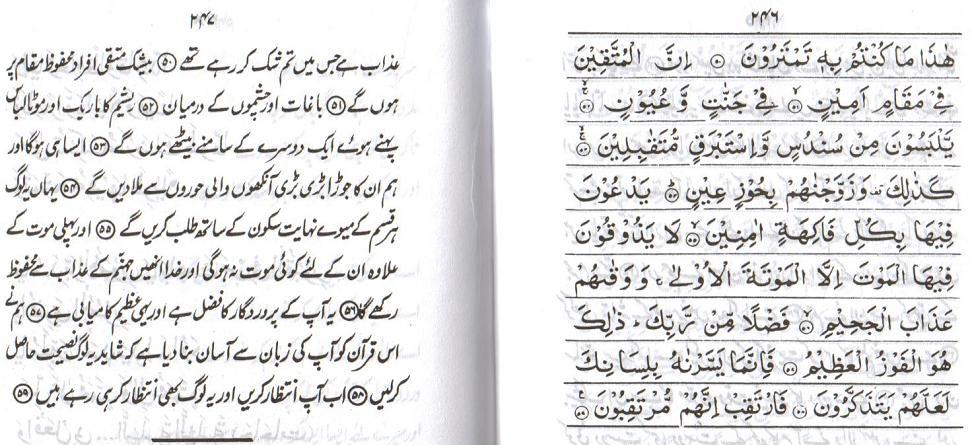 ۲۴۶
هٰذَا مَا كُنْتُمْ بِهٖ تَمْتَرُوْنَ ۝۵۰ اِنَّ الْمُتَّقِيْنَ
فِيْ مَقَامٍ اَمِيْنٍ ۝۵۱ فِيْ جَنّٰتٍ وَّ عُيُوْنٍ ۝۵۲
يَّلْبَسُوْنَ مِنْ سُنْدُسٍ وَّ اِسْتَبْرَقٍ مُّتَقٰبِلِيْنَ ۝۵۳
كَذٰلِكَ وَ زَوَّجْنٰهُمْ بِحُوْرٍ عِيْنٍ ۝۵۴ يَدْعُوْنَ
فِيْهَا بِكُلِّ فَاكِهَةٍ اٰمِنِيْنَ ۝۵۵ لَا يَذُوْقُوْنَ
فِيْهَا الْمَوْتَ اِلَّا الْمَوْتَةَ الْاُوْلٰى ۚ وَ وَقٰىهُمْ
عَذَابَ الْجَحِيْمِ ۝۵۶ فَضْلًا مِّنْ رَّبِّكَ ؕ ذٰلِكَ
هُوَ الْفَوْزُ الْعَظِيْمُ ۝۵۷ فَاِنَّمَا يَسَّرْنٰهُ بِلِسَانِكَ
لَعَلَّهُمْ يَتَذَكَّرُوْنَ ۝۵۸ فَارْتَقِبْ اِنَّهُمْ مُّرْتَقِبُوْنَ ۝۵۹
۲۴۷
عذاب ہے جس میں تم شک کر رہے تھے ۝۵۰ بیشک متقی افراد محفوظ مقام پر
ہوں گے ۝۵۱ باغات اور چشموں کے درمیان ۝۵۲ ریشم کا باریک اور موٹا لباس
پہنے ہوئے ایک دوسرے کے سامنے بیٹھے ہوں گے ۝۵۳ ایسا ہی ہوگا اور
ہم ان کا جوڑا بڑی بڑی آنکھوں والی حوروں سے ملا دیں گے ۝۵۴ یہاں یہ لوگ
ہر قسم کے میوے نہایت سکون کے ساتھ طلب کریں گے ۝۵۵ اور پہلی موت کے
علاوہ ان کے لئے کوئی موت نہ ہوگی اور خدا انھیں جہنّم کے عذاب سے محفوظ
رکھے گا ۝۵۶ یہ آپ کے پروردگار کا فضل ہے اور یہی عظیم کامیابی ہے ۝۵۷ ہم نے
اس قرآن کو آپ کی زبان سے آسان بنا دیا ہے کہ شاید یہ لوگ نصیحت حاصل
کرلیں ۝۵۸ اب آپ انتظار کریں اور یہ لوگ بھی انتظار کر ہی رہے ہیں ۝۵۹